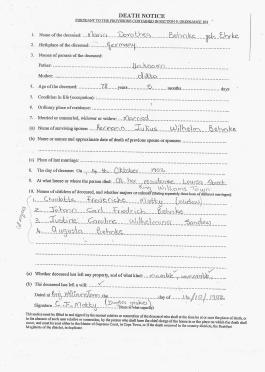 DEATH NOTICE
PURSUANT TO THE PROVISIONS CONTAINED IN SECTION 9, ORDINANCE 104
1. Name of the deceased: Maria Dorothea Behnke geb. Ehrke
2. Birthplace of the deceased: Germany
3. Names of parents of the deceased:
Father: Unknown
Mother: ditto
4. Age of the deceased: 78 years 5 months days
5. Condition in life (occupation):
6. Ordinary place of residence:
7. Married or unmarried, widower or widow: Married
(a) Name of surviving spouse: Hermann Julius Wilhelm Behnke
(b) Name or names and approximate date of death of previous spouse or spouses
(c) Place of last marriage:
8. The day of decease: On, the Oktober 1902
9. At what house or where the person died: At her residence Louisa Street
King Williams Town
10. Names of children of deceased, and whether majors or minors
1. Charlotte Friederike Mattky (widow)
2. Johann Carl Friedrich Behnke
3. Justine Caroline Wilhelmina Sandow
4. Augusta Behnke
(a) Whether deceased has left any property, and of what kind: movable, immovable
(b) The deceased has left a will:
Dated at King Williams Town the day of 16/10/1902
Signature C.F. Mattky